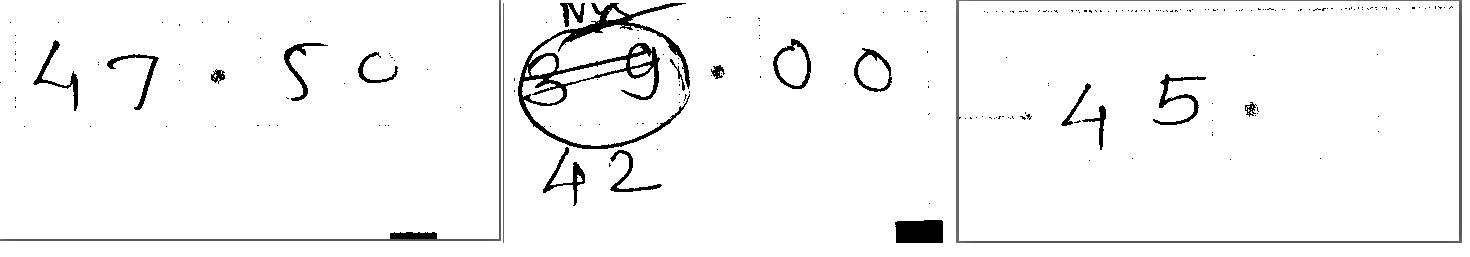 47.50
39.00
42
45.